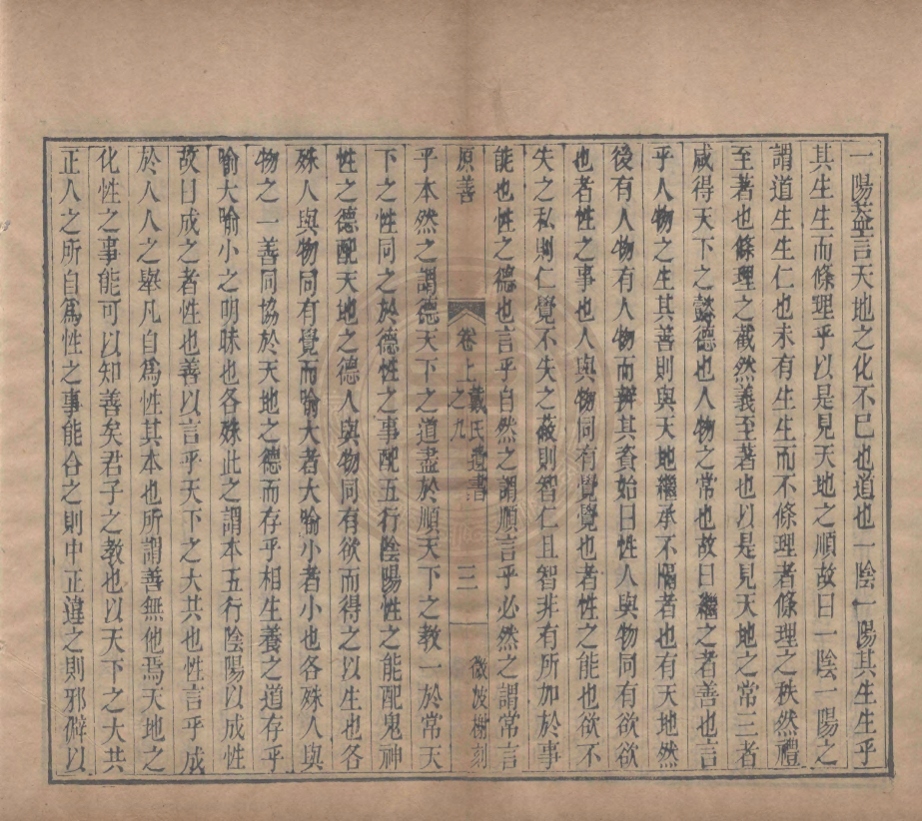 一陽蓋言天地之化不已也道也一陰一陽其生生乎
其生生而條理乎以是見天地之順故曰一陰一陽之
謂道生生仁也未有生生而不條理者條理之秩然禮
至著也條理之截然義至著也以是見天地之常三者
咸得天下之懿德也人物之常也故曰繼之者善也言
乎人物之生其善則與天地繼承不隔者也有天地然
後有人物有人物而辨其資始曰性人與物同有欲欲
也者性之事也人與物同有覺覺也者性之能也欲不
失之私則仁覺不失之蔽則智仁且智非有所加於事
能也性之德也言乎自然之謂順言乎必然之謂常言
原善
卷上
戴氏遺書之九
三
微波榭刻
乎本然之謂德天下之道盡於順天下之教一於常天
下之性同之於德性之事配五行陰陽性之能配鬼神
性之德配天地之德人與物同有欲而得之以生也各
殊人與物同有覺而喻大者大喻小者小也各殊人與
物之一善同協於天地之德而存乎相生養之道存乎
喻大喻小之明昧也各殊此之謂本五行陰陽以成性
故曰成之者性也善以言乎天下之大共也性言乎成
於人人之舉凡自爲性其本也所謂善無他焉天地之
化性之事能可以知善矣君子之教也以天下之大共
正人之所自爲性之事能合之則中正違之則邪僻以